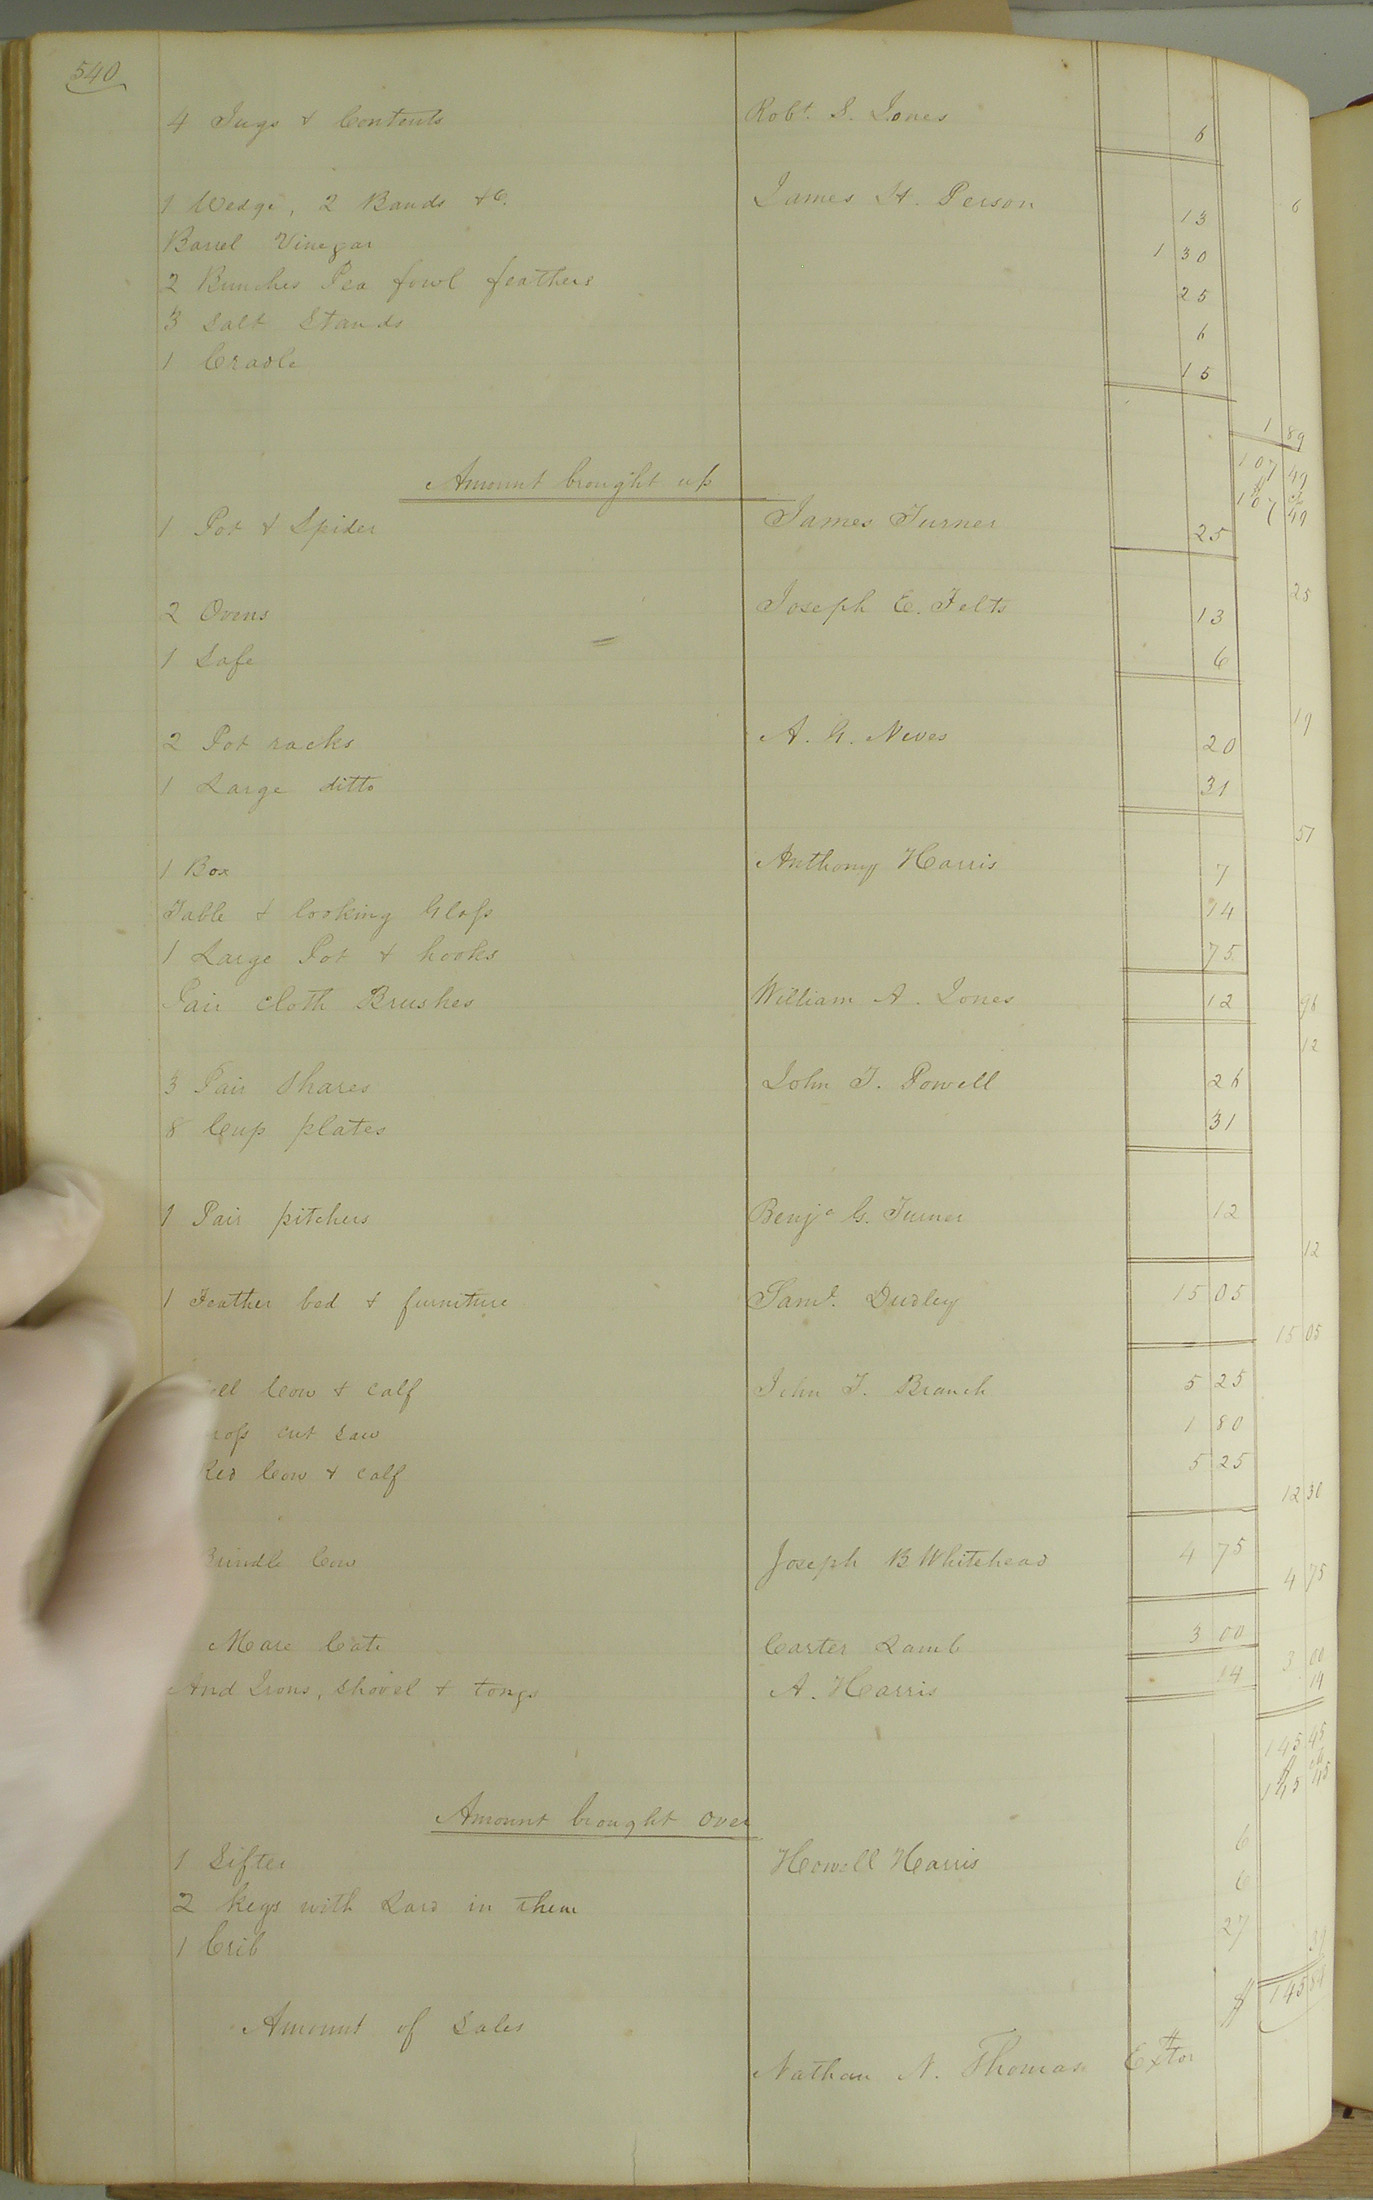 540
4 Jugs & Contents Robt. S. Jones 6
6
1 Wedge, 2 Bands &C. James H. Person 13
Barrel Vinegar 1 30
2 Bunches Pea fowl feathers 25
3 Salt Stands 6
1 Cradle 15
1 89
107 49
Amount brought up 107 49
1 Pot & Spider James Turner 25
25
2 Ovens Joseph E. Felts 13
1 Safe 6
19
2 Pot racks A. G. Neves 20
1 Large ditto 31
51
1 Box Anthony Harris 7
Table & looking Glass 14
1 Large Pot & hooks 75
96
Pair cloth Brushes William A. Jones 12
12
3 Pair Shares John T. Powell 26
8 Cup plates 31
1 Pair pitchers Benja G. Turner 12
12
1 Feather bed & furniture Saml. Dudley 15 05
15 05
Cow & calf John T. Branch 5 25
cut Saw 1 80
Red Cow & calf 5 25
12 30
Brindle Cow Joseph B Whitehead 4 75
4 75
Mare Cate Carter Lamb 3 00
3 00
And Irons, Shovel & tongs A. Harris 14
14
145 45
Amount brought over 145 45
1 Sifter Howell Harris 6
2 kegs with Lard in them 6
1 Crib 27
39
Amount of Sales $ 145 84
Nathan N. Thomas Extor